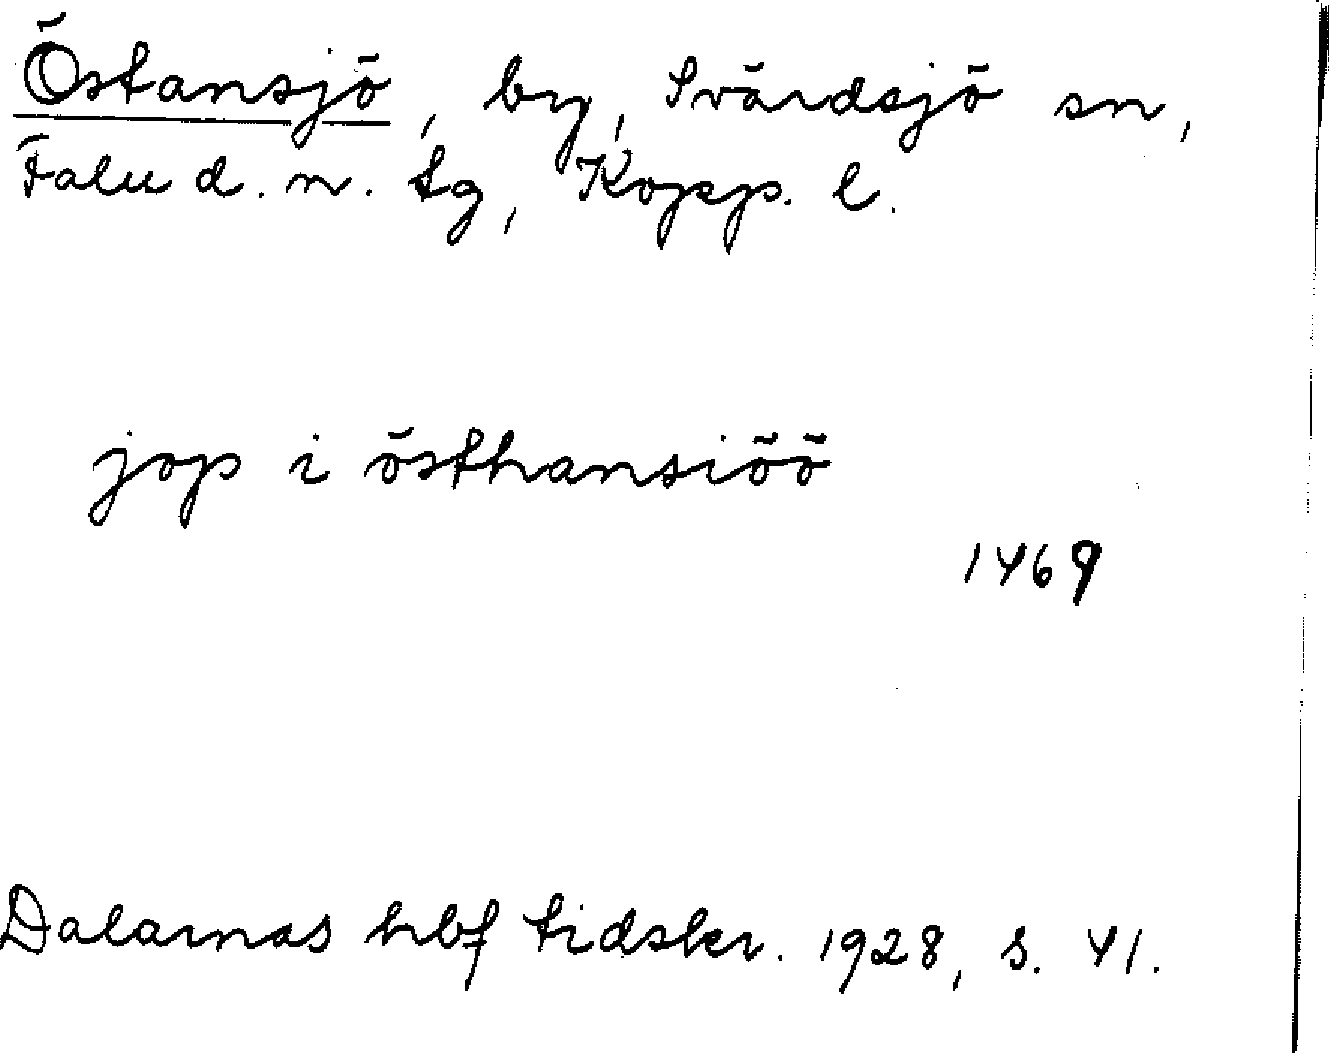 Östansjö, by, Svärdsjö sn,
Falu d. n. tg, Kopp. l.
jop i östhansiöö
1469
Dalarnas hbf tidskr. 1928, s. 41.